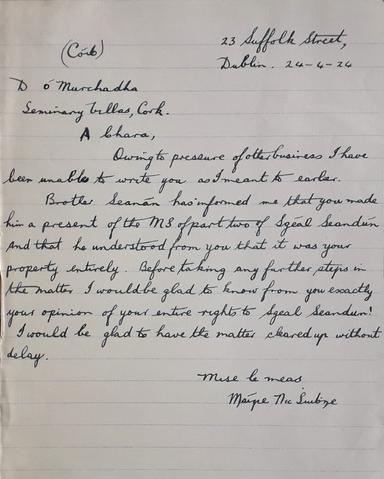 (Cóib)
23 Suffolk Street,
Dublin. 24-4-24
D Ó Murchadha
Seminary Villas, Cork.
A Chara,
Owing to pressure of other business I have
been unable to write you as I meant to earlier.
Brother Seanán has informed me that you made
him a present of the MS of part two of Sgéal Seandún
and that he understood from you that it was your
property entirely. Before taking any further steps in
the matter I would be glad to know from you exactly
your opinion of your entire rights to Sgéal Seandun!
I would be glad to have the matter cleared up without
delay.
Mise le meas
Máire Nic Suibne